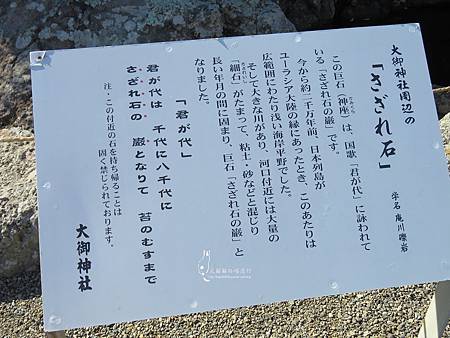 大御神社周辺の
「さざれ石」
学名 庵川礫岩
この巨石(神座)は、国歌「君が代」に詠われて
いる「さざれ石の巌」です。
今から約二千万年前、日本列島が
ユーラシア大陸の縁にあったとき、このあたりは
広範囲にわたり浅い海岸平野でした。
そして大きな川があり、河口付近には大量の
「細石」がたまって、粘土・砂などと混じり
長い年月の間に固まり、巨石「さざれ石の巌」と
なりました。
「君が代」
君が代は 千代に八千代に
さざれ石の 巌となりて 苔のむすまで
注・この付近の石を持ち帰ることは
固く禁じられております。
大御神社